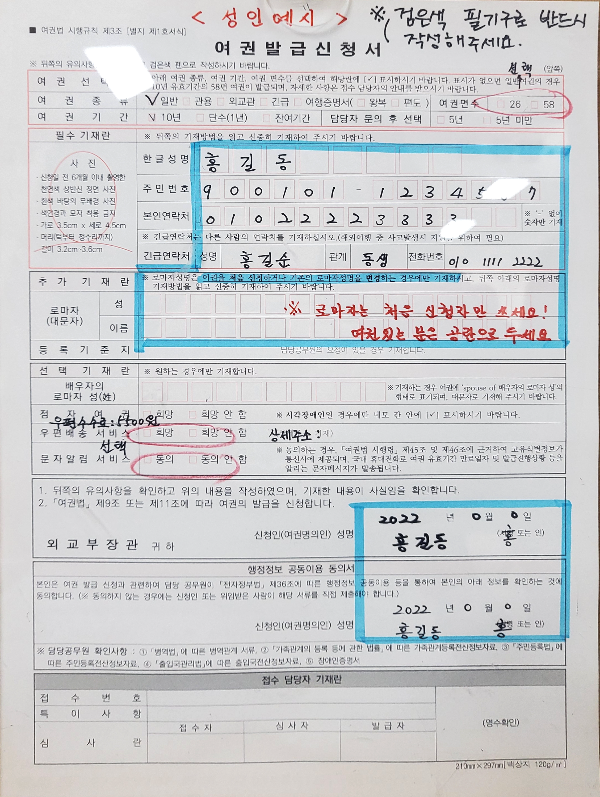 < 성인예시 > ※ 검은색 필기구로 반드시
작성해주세요.
■ 여권법 시행규칙 제3조 [별지 제1호서식]
여권발급신청서
※ 뒤쪽의 유의사항 검은색 펜으로 작성하시기 바랍니다. 선택 (앞쪽)
여 권 선 택 아래 여권 종류, 여권 기간, 여권 면수를 선택하여 해당란에 [√] 표시하시기 바랍니다. 표시가 없으면 일반여권의 경우
10년 유효기간의 58면 여권이 발급되며, 자세한 사항은 접수 담당자의 안내를 받으시기 바랍니다.
여 권 종 류 √일반 □ 관용 □ 외교관 □ 긴급 □ 여행증명서(□ 왕복 □ 편도) 여권면수 □ 26 □ 58
여 권 기 간 √10년 □ 단수(1년) □ 잔여기간 담당자 문의 후 선택 □ 5년 □ 5년 미만
필수 기재란 ※ 뒤쪽의 기재방법을 읽고 신중히 기재하여 주시기 바랍니다.
사 진
- 신청일 전 6개월 이내 촬영한
천연색 상반신 정면 사진
- 흰색 바탕의 무배경 사진
- 색안경과 모자 착용 금지
- 가로 3.5cm x 세로 4.5cm
- 머리(턱부터 정수리까지)
길이 3.2cm-3.6cm
한글성명 홍 길 동
주민번호 9 0 0 1 0 1 - 1 2 3 4 5 6 7
본인연락처 0 1 0 2 2 2 2 3 3 3 3 ※ '-' 없이
숫자만 기재
※ 긴급연락처는 다른 사람의 연락처를 기재하십시오.(해외여행 중 사고발생시 지원을 위하여 필요)
긴급연락처 성명 홍길순 관계 동생 전화번호 010 1111 2222
추 가 기 재 란 ※ 로마자성명은 여권을 처음 신청하거나 기존의 로마자성명을 변경하는 경우에만 기재하시고, 뒤쪽 아래의 로마자성명
기재방법을 읽고 신중히 기재하여 주시기 바랍니다.
로마자
(대문자)
성 ※ 로마자는 처음 신청자만 쓰세요!
이름 여권있는 분은 공란으로 두세요
등 록 기 준 지 담당공무원의 요청이 있을 경우 기재합니다.
선 택 기 재 란 ※ 원하는 경우에만 기재합니다.
배우자의
로마자 성(姓)
※ 기재하는 경우 여권에 'spouse of 배우자의 로마자 성'의
형태로 표기되며, 대문자로 기재해 주시기 바랍니다.
점 자 여 권 □ 희망 □ 희망 안 함 ※ 시각장애인인 경우에만 네모 칸 안에 [√] 표시하시기 바랍니다.
우편수수료:5500원
우편배송서비스 □ 희망 □ 희망 안 함 상세주소
선택
문자알림서비스 □ 동의 □ 동의 안 함 ※ 동의하는 경우, 「여권법 시행령」 제45조 및 제46조에 근거하여 고유식별정보가
통신사에 제공되며, 국내 휴대전화로 여권 유효기간 만료일자 및 발급진행상황 등을
알리는 문자메시지가 발송됩니다.
1. 뒤쪽의 유의사항을 확인하고 위의 내용을 작성하였으며, 기재한 내용이 사실임을 확인합니다.
2. 「여권법」 제9조 또는 제11조에 따라 여권의 발급을 신청합니다.
2022 년 0 월 0 일
신청인(여권명의인) 성명 홍길동 홍 (서명 또는 인)
외교부장관 귀하
행정정보 공동이용 동의서
본인은 여권 발급 신청과 관련하여 담당 공무원이 「전자정부법」 제36조에 따른 행정정보 공동이용 등을 통하여 본인의 아래 정보를 확인하는 것에
동의합니다. (※ 동의하지 않는 경우에는 신청인 또는 위임받은 사람이 해당 서류를 직접 제출해야 합니다.)
2022 년 0 월 0 일
신청인(여권명의인) 성명 홍길동 홍 (서명 또는 인)
※ 담당공무원 확인사항 : ① 「병역법」에 따른 병역관계 서류, ② 「가족관계의 등록 등에 관한 법률」에 따른 가족관계등록전산정보자료, ③ 「주민등록법」에
따른 주민등록전산정보자료, ④ 「출입국관리법」에 따른 출입국전산정보자료, ⑤ 장애인증명서
접수 담당자 기재란
접 수 번 호
특 이 사 항
심 사 란 접 수 자 심 사 자 발 급 자 (영수확인)
210mm×297mm[백상지 120g/㎡]